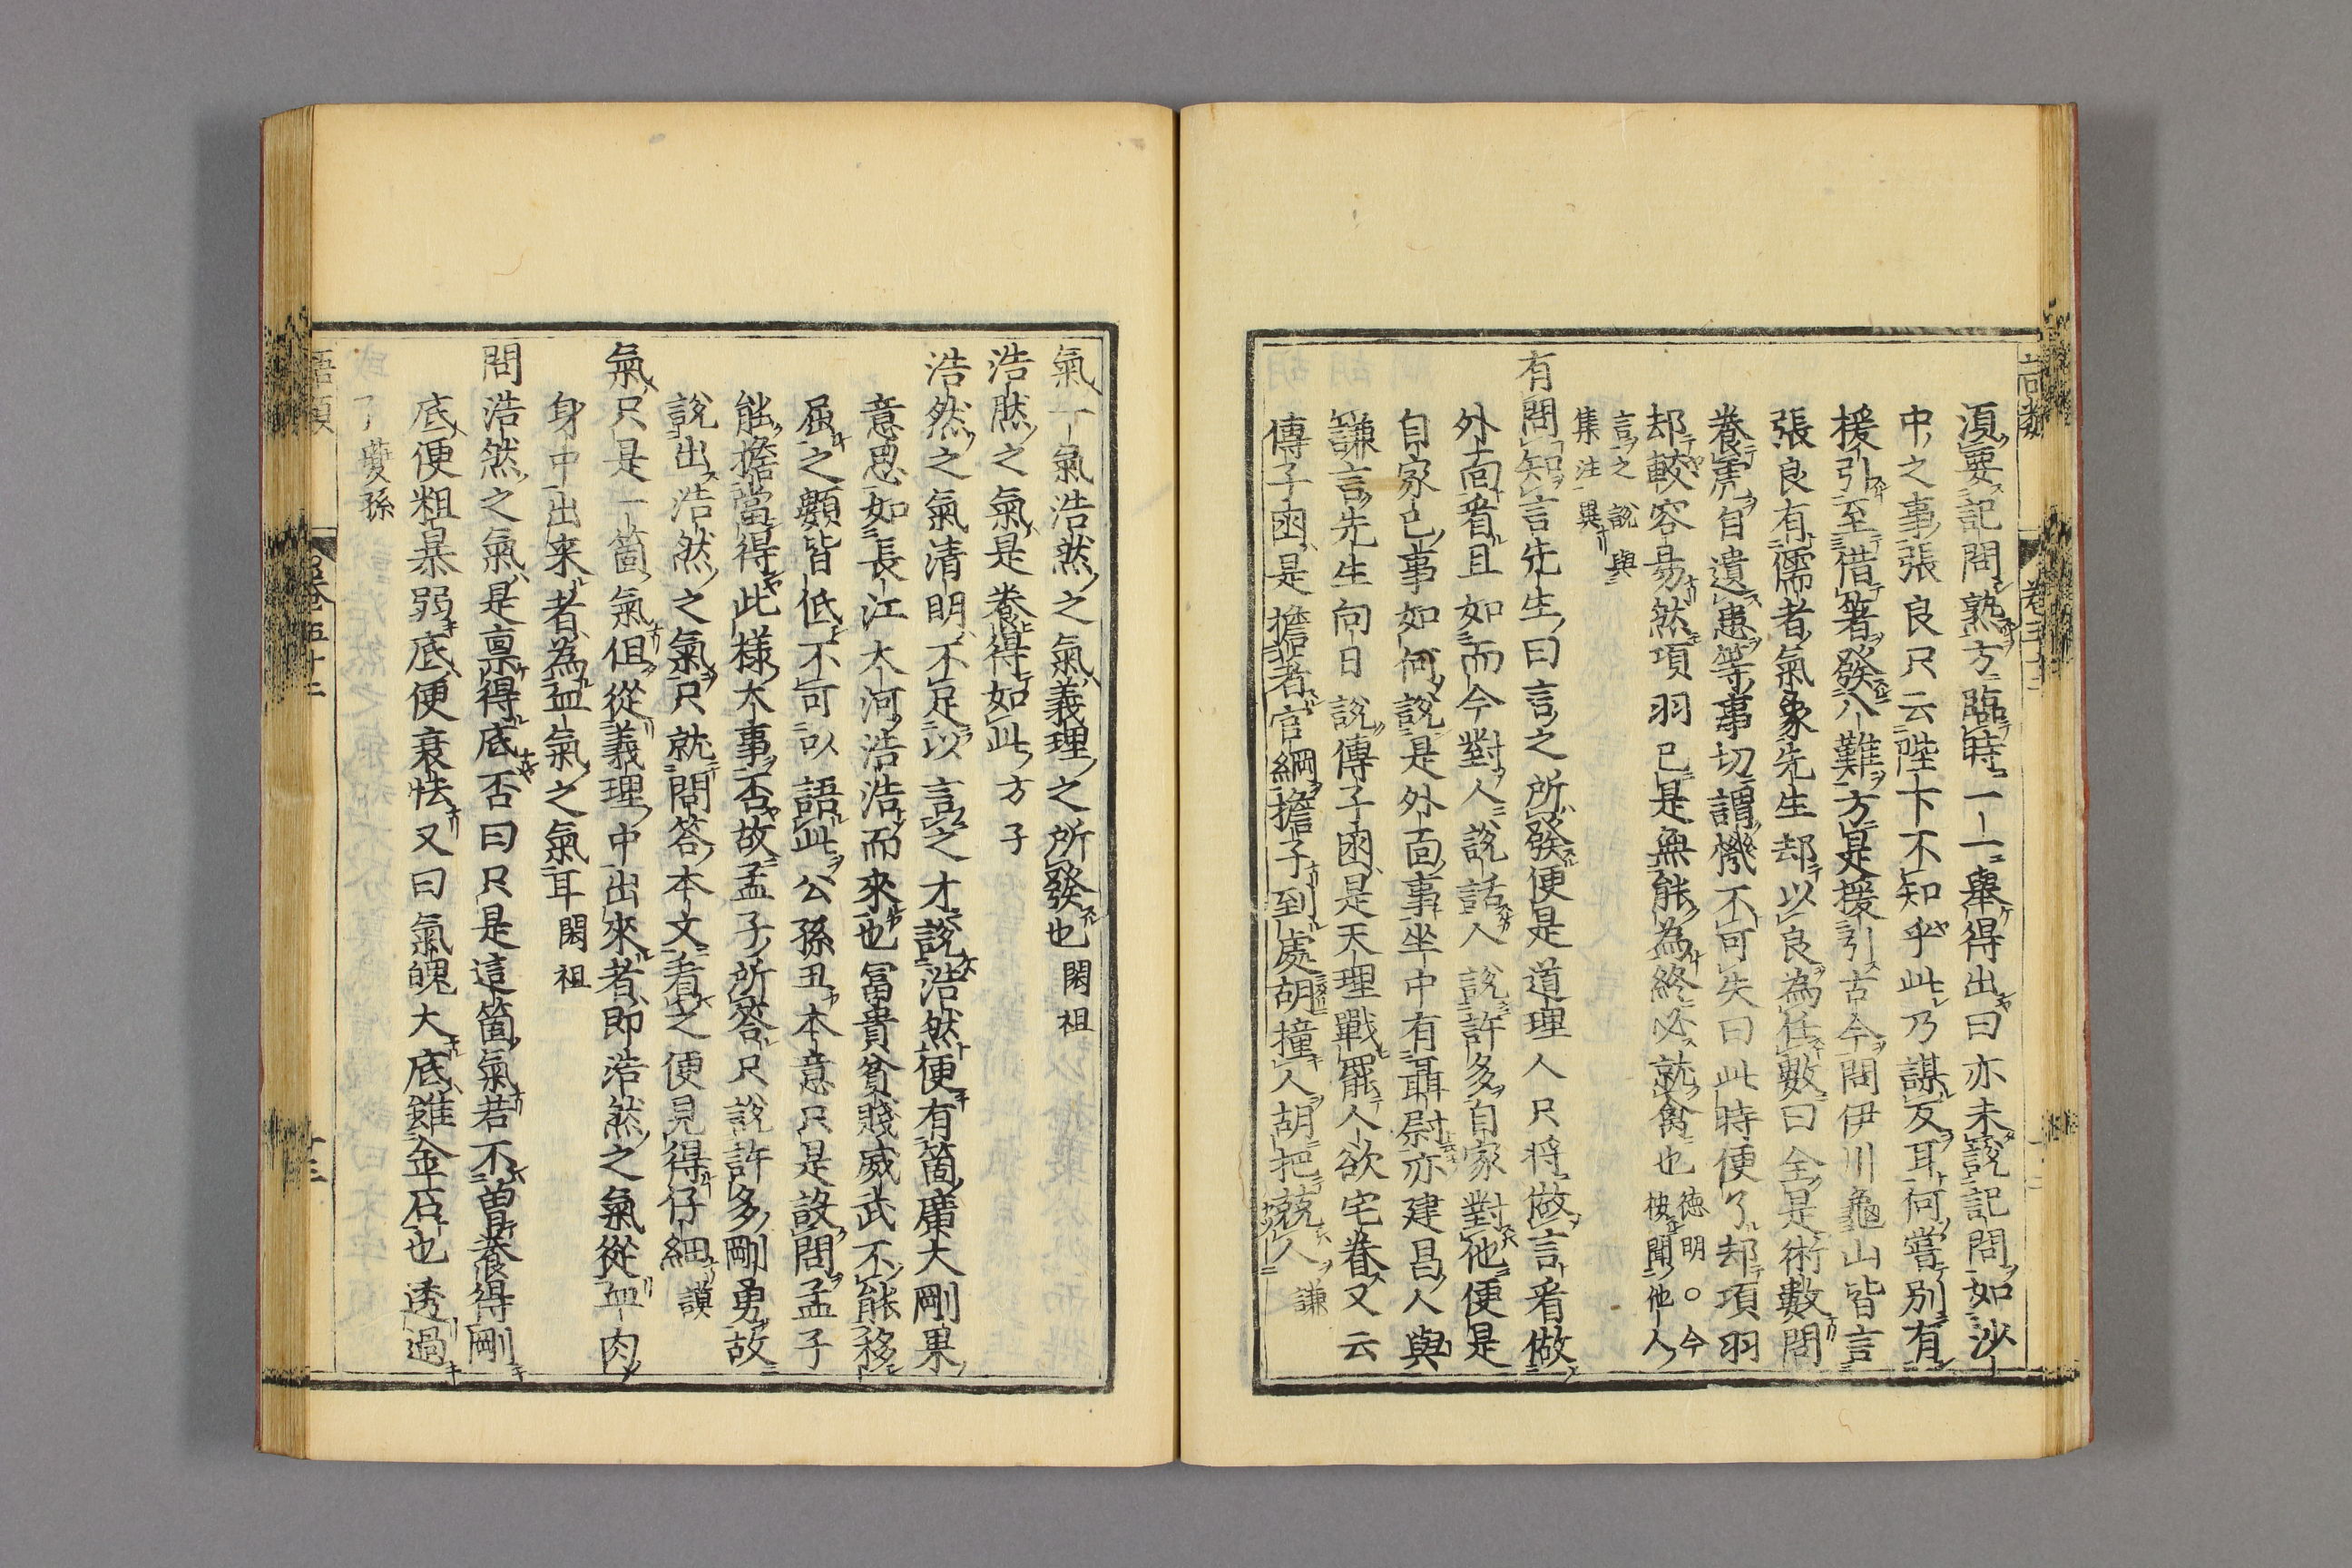 湏要記問熟方臨時一一舉得出曰亦未說記問如沙
中之事張良只云陛下不知乎此乃謀反耳何嘗別有
援引至借箸發八難方是援引古今問伊川龜山皆言
張良有儒者氣象先生却以良為任數曰全是術數問
養虎自遺患等事切謂機不可失曰此時便了却項羽
却較容易然項羽已是無能為終必就禽也德明○今
按聞他人
言之說與
集注異
有問知言先生曰言之所發便是道理人只將做言看做
外面看且如而今對人說話人說許多自家對他便是
自家己事如何說是外面事坐中有聶尉亦建昌人與
謙言先生向日說傅子函是天理戰罷人欲宅眷又云
傅子函是擔著官綱擔子到處胡撞人胡把競人謙
氣一氣浩然之氣義理之所發也閎祖
浩然之氣是養得如此方子
浩然之氣清明不足以言之才說浩然便有箇廣大剛果
意思如長江大河浩浩而來也冨貴貧賤威武不能移
屈之類皆低不可以語此公孫丑本意只是設問孟子
能擔當得此樣大事否故孟子所答只說許多剛勇故
說出浩然之氣只就問答本文看之便見得仔細謨
氣只是一箇氣但從義理中出來者即浩然之氣從血肉
身中出来者為血氣之氣耳閎祖
問浩然之氣是稟得底否曰只是這箇氣若不曾養得剛
底便粗暴弱底便衰怯又曰氣魄大底雖金石也透過
了夔孫
語類
卷五十二
十三